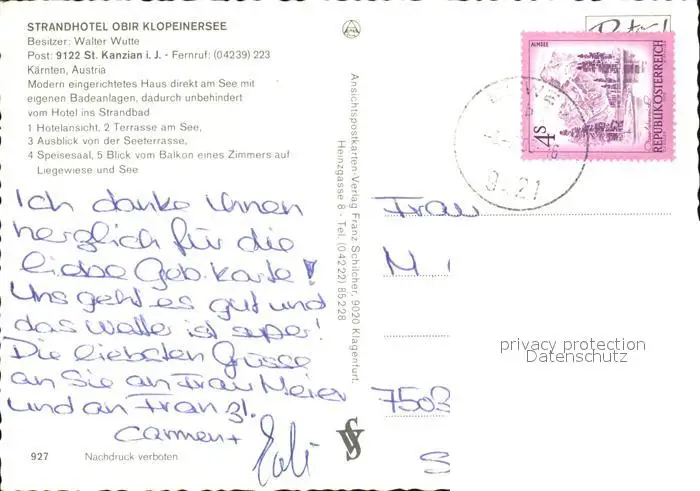 STRANDHOTEL OBIR KLOPEINERSEE
Besitzer: Walter Wutte
Post: 9122 St. Kanzian i. J. - Fernruf: (04239) 223
Kärnten, Austria
Modern eingerichtetes Haus direkt am See mit
eigenen Badeanlagen, dadurch unbehindert
vom Hotel ins Strandbad
1 Hotelansicht, 2 Terrasse am See,
3 Ausblick von der Seeterrasse,
4 Speisesaal, 5 Blick vom Balkon eines Zimmers auf
Liegewiese und See
Ich danke Ihnen
herzlich für die
liebe Geb. karte!
Uns geht es gut und
das Wetter ist super!
Die liebsten Grüsse
an Sie an Frau Meier
und an Franzl.
Carmen +
927 Nachdruck verboten
Ansichtspostkarten-Verlag Franz Schilcher, 9020 Klagenfurt,
Heinzgasse 8 - Tel. (04222) 85228
ALMSEE
4 S
REPUBLIK ÖSTERREICH
Frau
M
7503
S
privacy protection
Datenschutz